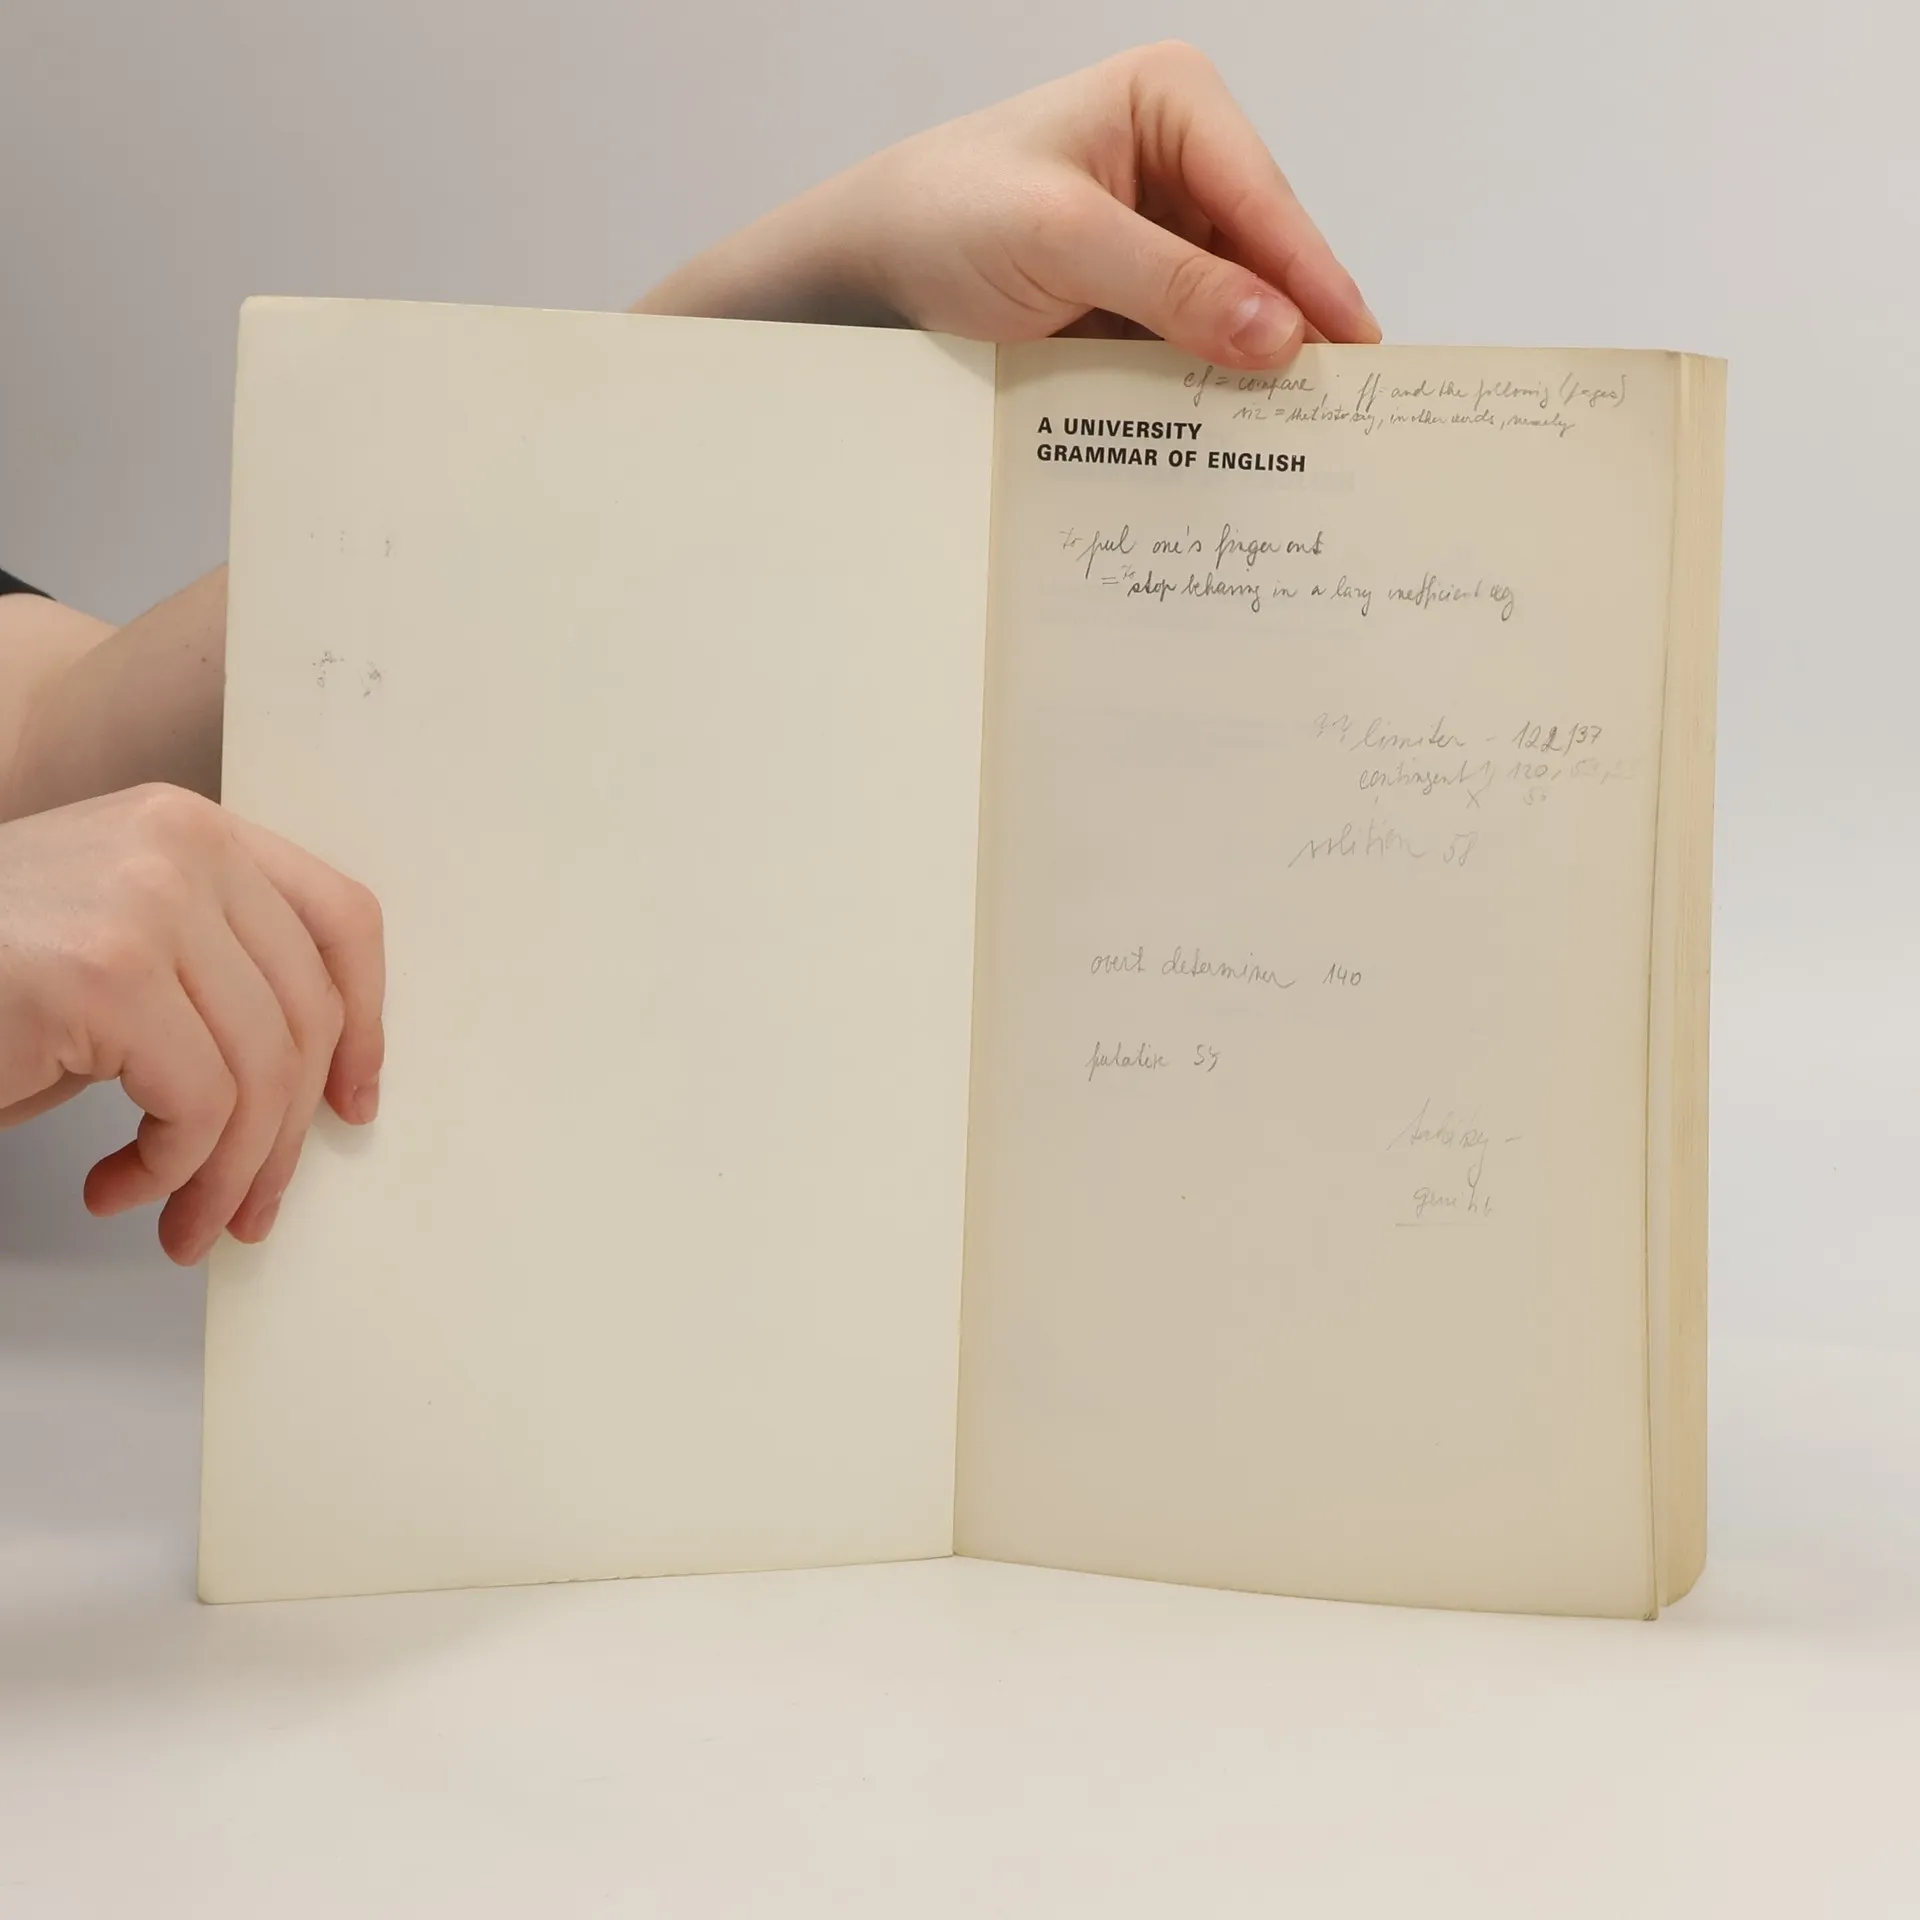 cf = compare ; ff and the following (pages)
viz = that is to say, in other words, namely
A UNIVERSITY
GRAMMAR OF ENGLISH
to pul one's finger out
= to stop behaving in a lazy inefficient
limiter - 122/37
contingent 120,
volition 58
overt determiner 140
putative